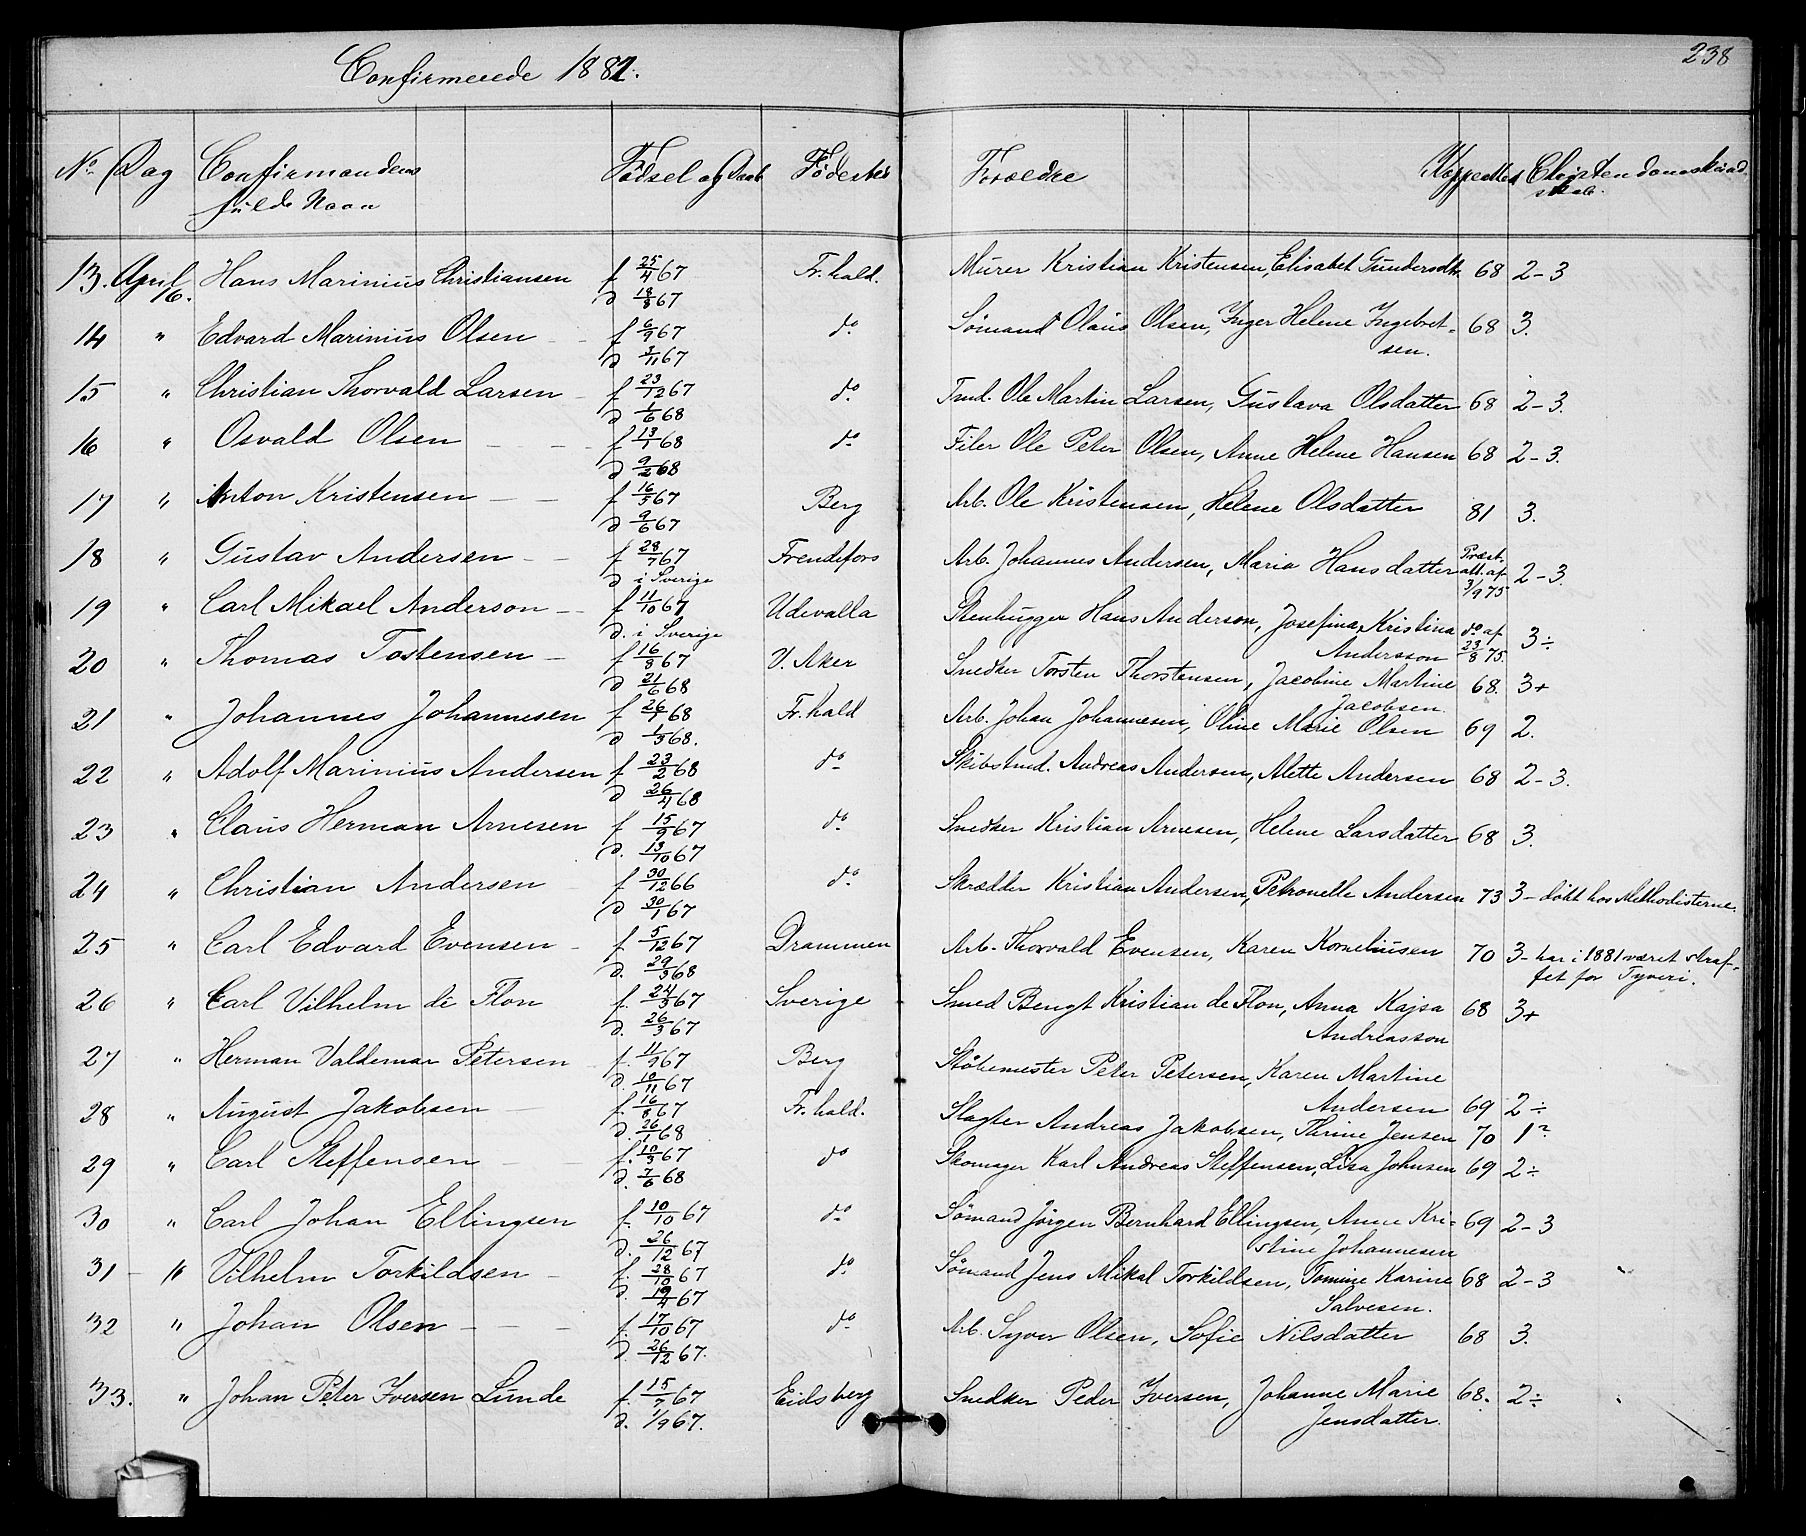 238
Confirmerede 1882.
No Dag Confirmandens fulde Navn Fødsel og Daab Fødested Forældre Christendomskund-
skab.
13. April 16. Hans Marinius Christiansen f 25/4 67 d 18/8 67 Fr.hald. Murer Kristian Kristensen, Elisabet Gundersdtr. 68 2-3
14 " Edvard Marinius Olsen f 6/9 67 d 3/11 67 do Sømand Olaus Olsen, Inger Helene Ingebret-
sen. 68 3.
15 " Christian Thorvald Larsen f 23/12 67 d 1/6 68 do Tmd. Ole Martin Larsen, Gustava Olsdatter 68 2-3.
16 " Osvald Olsen f 13/1 68 d 9/2 68 do Filer Ole Peter Olsen, Anne Helene Hansen 68 2-3.
17 " Anton Kristensen f 16/5 67 d 9/6 67 Berg Arb. Ole Kristensen, Helene Olsdatter 81 3.
18 " Gustav Andersen f 28/7 67 d i Sverige Frendefors Arb. Johannes Andersen, Maria Hansdatter Præst. att. af 3/9 75 2-3.
19 " Carl Mikael Anderson f 11/10 67 d. i Sverige Udevalla Stenhugger Hans Anderson, Josefina Kristina
Andersson do af 23/8 75. 3÷
20 " Thomas Tostensen f 16/8 67 d 21/6 68 V. Aker Snedker Torsten Thorstensen, Jacobine Martine
Jacobsen. 68. 3+
21 " Johannes Johannesen f 26/1 68 d 1/5 68. Fr.hald Arb. Johan Johannesen, Oline Marie Olsen 69 2.
22 " Adolf Marinius Andersen f 23/2 68 d 26/4 68 do Skibstmd. Andreas Andersen, Mette Andersen 68 2-3.
23 " Claus Herman Arnesen f 15/9 67 d. 13/10 67 do Snedker Kristian Arnesen, Helene Larsdatter 68 3.
24 " Christian Andersen f 30/12 66 d 30/1 67 do Skrædder Kristian Andersen, Petronelle Andersen 73 3- døbt hos Methodisterne.
25 " Carl Edvard Evensen f 5/12 67 d. 29/3 68 Drammen Arb. Thorvald Evensen, Karen Korneliusen 70 3- har i 1881 været straf-
fet for Tyveri.
26 " Carl Vilhelm de Flon f. 24/3 67 d. 26/3 67 Sverige Smed Bengt Kristian de Flon, Anna Kajsa
Andreasson 68 3+
27 " Herman Valdemar Petersen f. 11/9 67 d. 10/11 67 Berg Støbemester Peter Petersen, Karen Martine
Andersen 69 2÷
28 " August Jakobsen f. 16/8 67 d. 26/1 68 Fr.hald. Slagter Andreas Jakobsen, Thrine Jensen 70 1?
29 " Carl Steffensen f. 10/3 67 d. 7/6 68 do Skomager Karl Andreas Steffensen, Lisa Johnsen 69 2÷
30 " Carl Johan Ellingsen f. 10/10 67 d. 26/12 67 do Sømand Jørgen Bernhard Ellingsen, Anne Kri-
stine Johannesen 69 2-3
31 " Vilhelm Torkildsen f. 28/10 67 d. 19/4 67 do Sømand Jens Mikal Torkildsen, Tomine Karine
Salvesen. 68 2-3
32 " Johan Olsen f. 17/10 67 d. 26/12 67. do Arb. Syver Olsen, Sofie Nilsdatter 68 3.
33. " Johan Peter Iversen Lunde f. 15/7 67 d. 1/9 67. Eidsberg Snedker Peder Iversen, Johanne Marie
Jensdatter. 68. 2÷